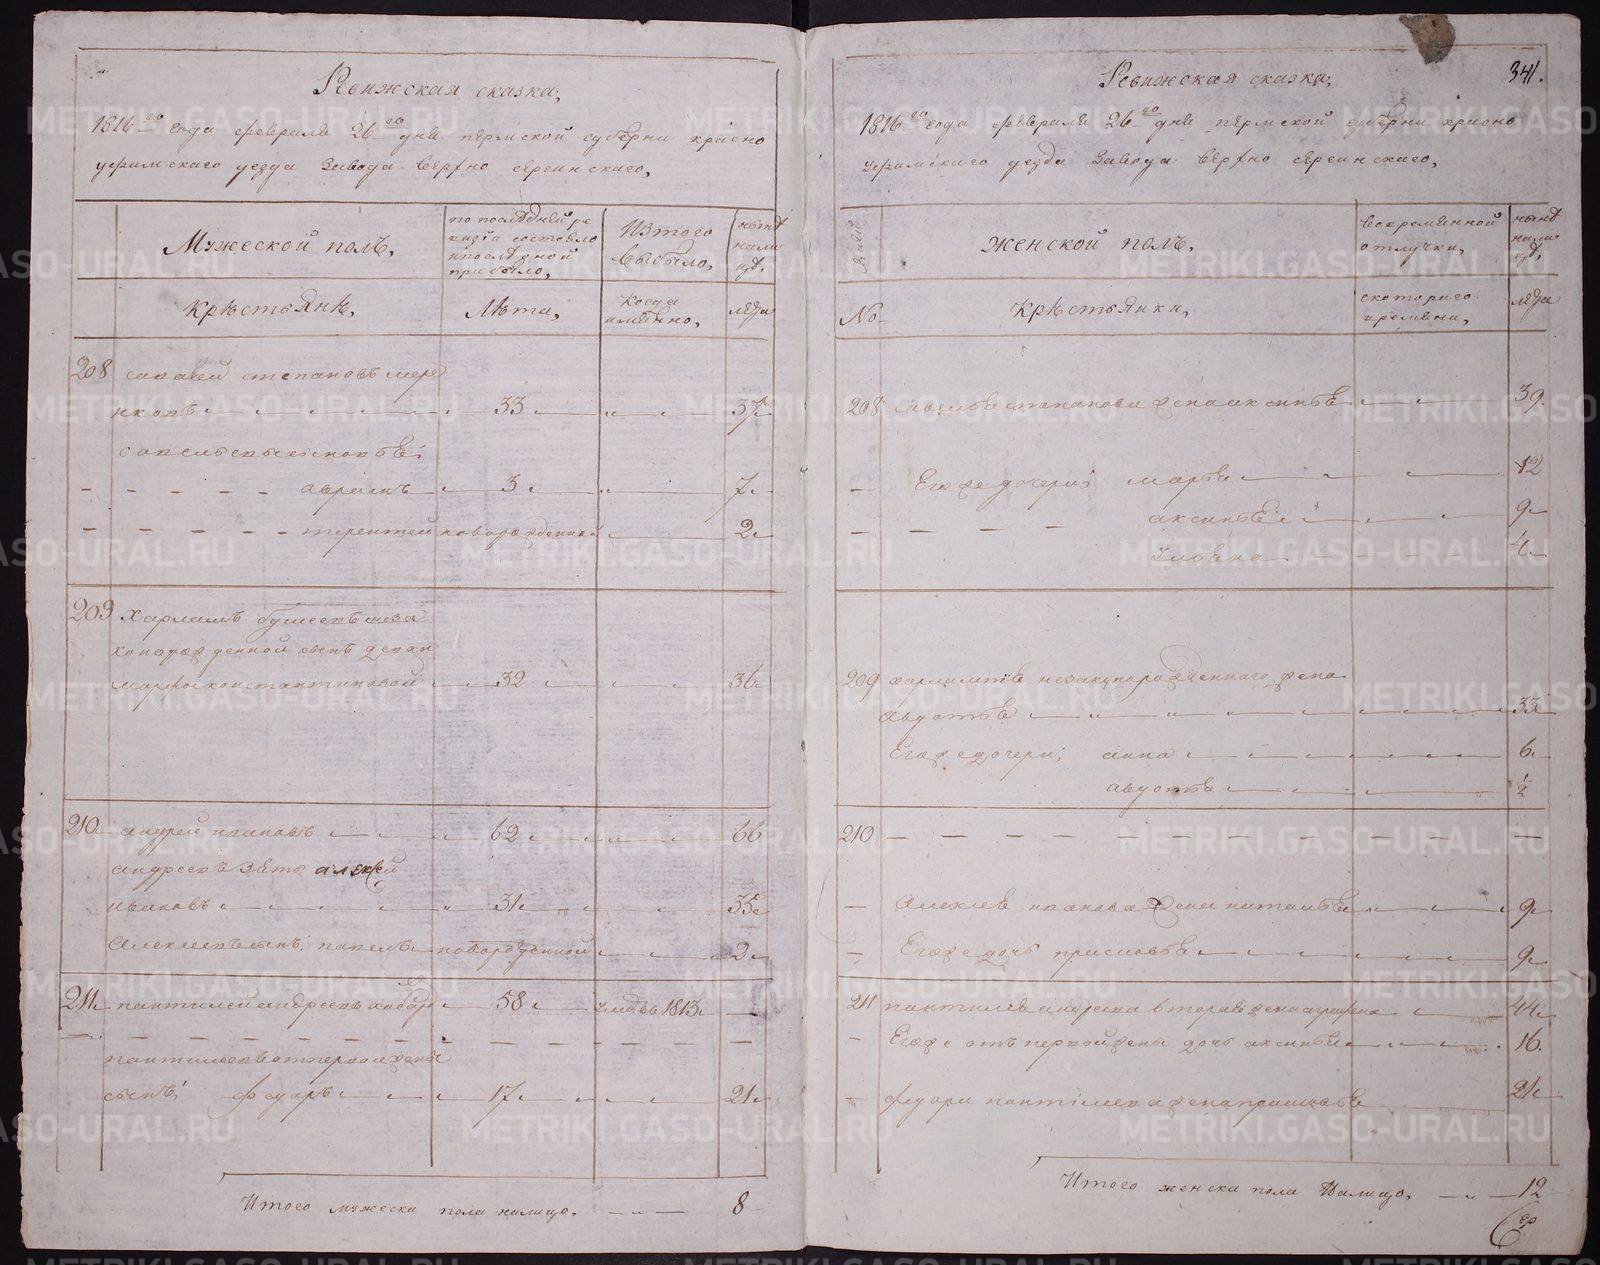 Ревижская сказка,
1816 го года февраля 26 го дня пермской губерни красно
уфимскаго уезда Завода верхно сергинскаго,
Мужеской полъ,
по последней ре
визіи состояло
и после оной
прибыло,
Изтого
выбыло,
ныне
нали
цо,
Крѣстьянѣ,
Лѣта,
Когда
имянно,
лѣта
208 савелей степановъ мере
нковъ 33 37
савельевы сыновьѣ;
аврамъ 3 7
терентей новорожденной 2
209 Харламъ
незаконорожденной сынъ девки
марфы константиновой 32 36
210 андрей ивановъ 62 66
андреевъ зять алексей
ивановъ 31 35
Алексеевъ сынъ павелъ новорожденной 2
211 пантилей андреевъ 58 умре въ 1813
пантилеевъ отпервой жены
сынъ; федоръ 17 21
Итого мужеска пола налицо, 8
341.
Ревижская сказка,
1816 го года февраля 26 го дня пермской губерни красно
уфимскаго уезда Завода верхно сергинскаго,
Женской полъ,
вовременной
отлучки,
ныне
нали
цо,
No
Крѣстьянки,
скотораго
времяни,
лѣта
208 савельѣ степанова жена аксиньѣ 39
Егоже дочери; марьѣ 12
аксиньѣ 9
4
209 харлампіѣ незаконорожденнаго жена
Авдотьѣ 33
Егоже дочери; анна 6
авдотьѣ 1/2
210
Алексеѣ иванова жена натальѣ 9
Егоже дочь прасковьѣ 9
211 пантилеѣ андреева вторая жена аграфена 44
Егоже отъ первой жены дочь аксиньѣ 16
федора пантилеева жена прасковьѣ 21
Итого женска пола Налицо, 12
METRIKI.GASO-URAL.RU